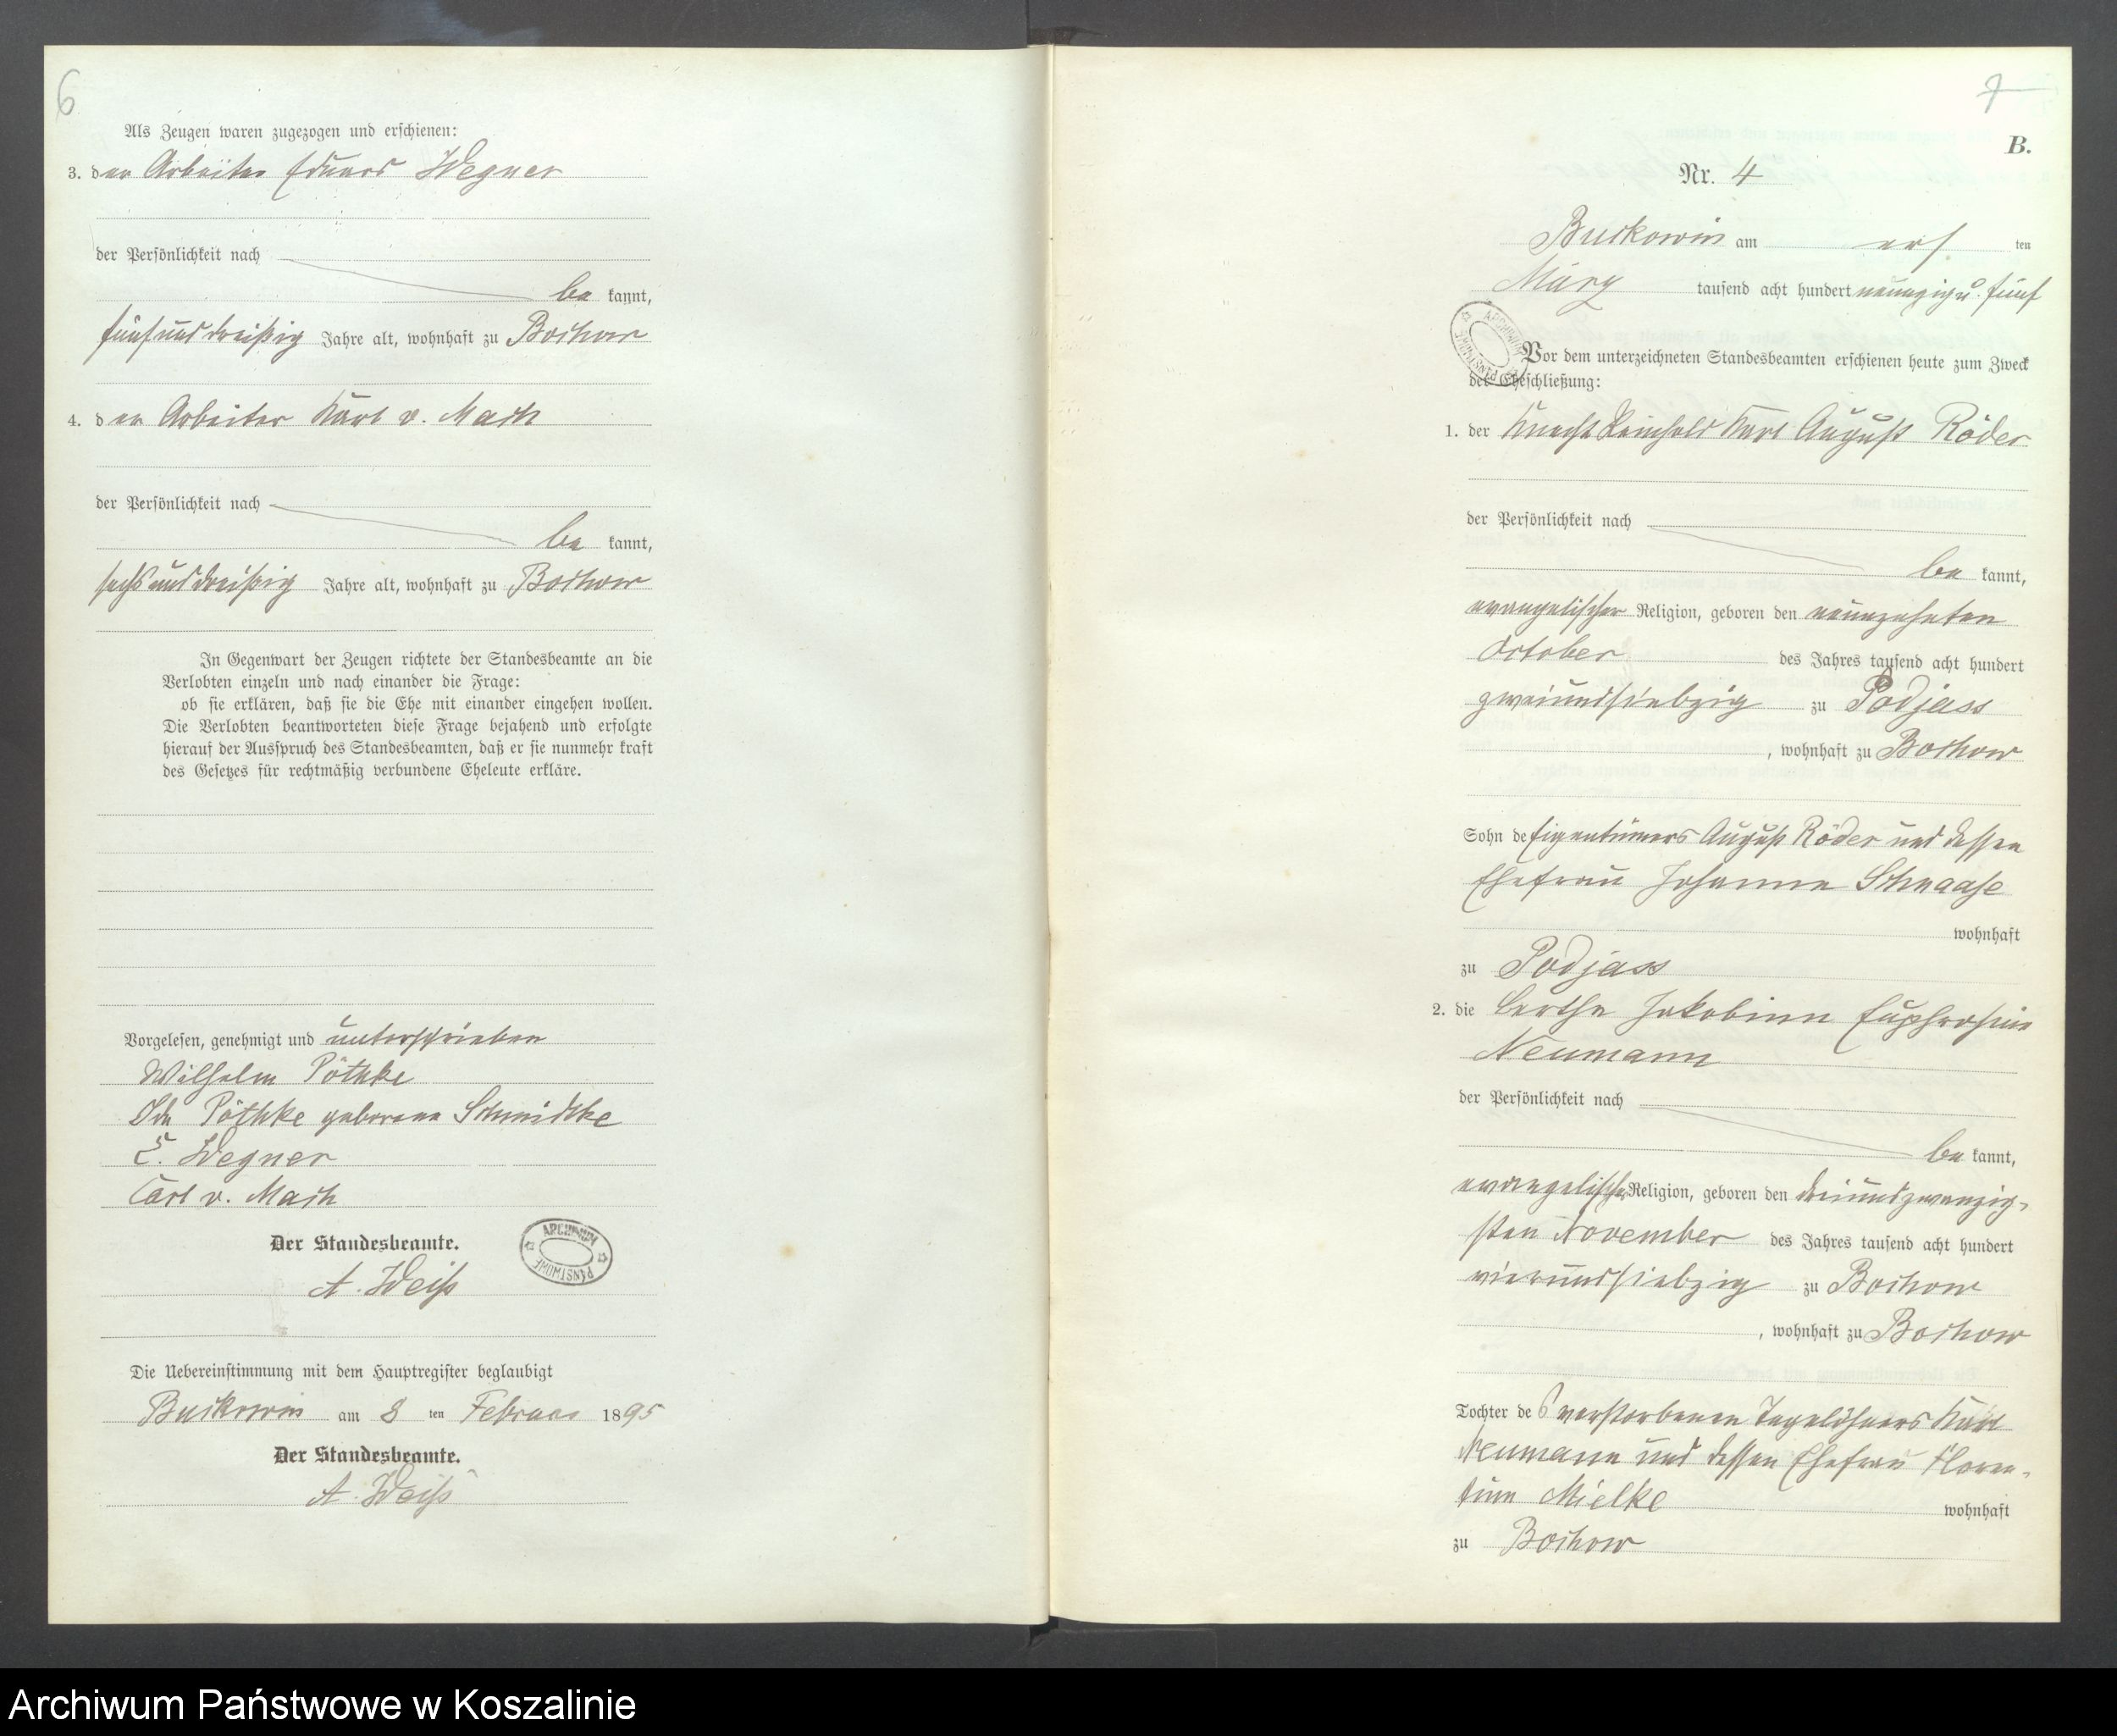 6
Als Zeugen waren zugezogen und erschienen:
3. der Arbeiter Eduard Wegner
der Persönlichkeit nach
be kannt,
fünfunddreißig Jahre alt, wohnhaft zu Bochow
4. der Arbeiter Karl v. Mach
der Persönlichkeit nach
be kannt,
sechsunddreißig Jahre alt, wohnhaft zu Bochow
In Gegenwart der Zeugen richtete der Standesbeamte an die
Verlobten einzeln und nach einander die Frage:
ob sie erklären, daß sie die Ehe mit einander eingehen wollen.
Die Verlobten beantworteten diese Frage bejahend und erfolgte
hierauf der Ausspruch des Standesbeamten, daß er sie nunmehr kraft
des Gesetzes für rechtmäßig verbundene Eheleute erkläre.
Vorgelesen, genehmigt und unterschrieben
Wilhelm Pöthke
Ida Pöthke geborene Schmidtke
E. Wegner
Carl v. Mach
Der Standesbeamte.
A. Weiß
ARCHIWUM PAŃSTWOWE
Die Uebereinstimmung mit dem Hauptregister beglaubigt
Buckowin am 8 ten Februar 1895
Der Standesbeamte.
A. Weiß
7
B.
Nr. 4
Buckowin am ers ten
März tausend acht hundert neunzig u. fünf
ARCHIWUM PAŃSTWOWE
Vor dem unterzeichneten Standesbeamten erschienen heute zum Zweck
der Eheschließung:
1. der Knecht Reinhold Karl August Röder
der Persönlichkeit nach
be kannt,
evangelischer Religion, geboren den neunzehnten
October des Jahres tausend acht hundert
zweiundsiebzig zu Podjass
, wohnhaft zu Bochow
Sohn de Eigentümers August Röder und dessen
Ehefrau Johanne Schnaase
wohnhaft
zu Podjass
2. die Berthe Jakobine Euphrosine
Neumann
der Persönlichkeit nach
be kannt,
evangelischer Religion, geboren den dreiundzwanzig-
sten November des Jahres tausend acht hundert
vierundsiebzig zu Bochow
, wohnhaft zu Bochow
Tochter des verstorbenen Tagelöhners Karl
Neumann und dessen Ehefrau Floren-
tine Mielke wohnhaft
zu Bochow
Archiwum Państwowe w Koszalinie